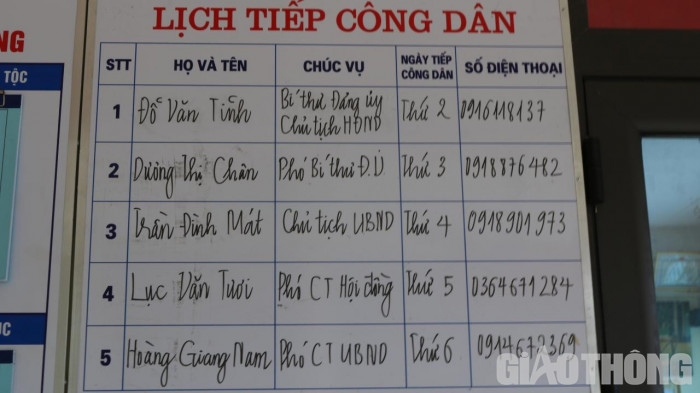 LỊCH TIẾP CÔNG DÂN
NG
TỘC
STT HỌ VÀ TÊN CHỨC VỤ NGÀY TIẾP CÔNG DÂN SỐ ĐIỆN THOẠI
1 Đỗ Văn Tĩnh Bí thư Đảng ủy Chủ tịch HĐND Thứ 2 0916118137
2 Dường Thị Chân Phó Bí thư Đ.U Thứ 3 0918876482
3 Trần Đình Mát Chủ tịch UBND Thứ 4 0918901973
4 Lục Văn Tươi Phó CT Hội đồng Thứ 5 0364671284
5 Hoàng Giang Nam Phó CT UBND Thứ 6 0914672369
ỤC
GIAOTHÔNG